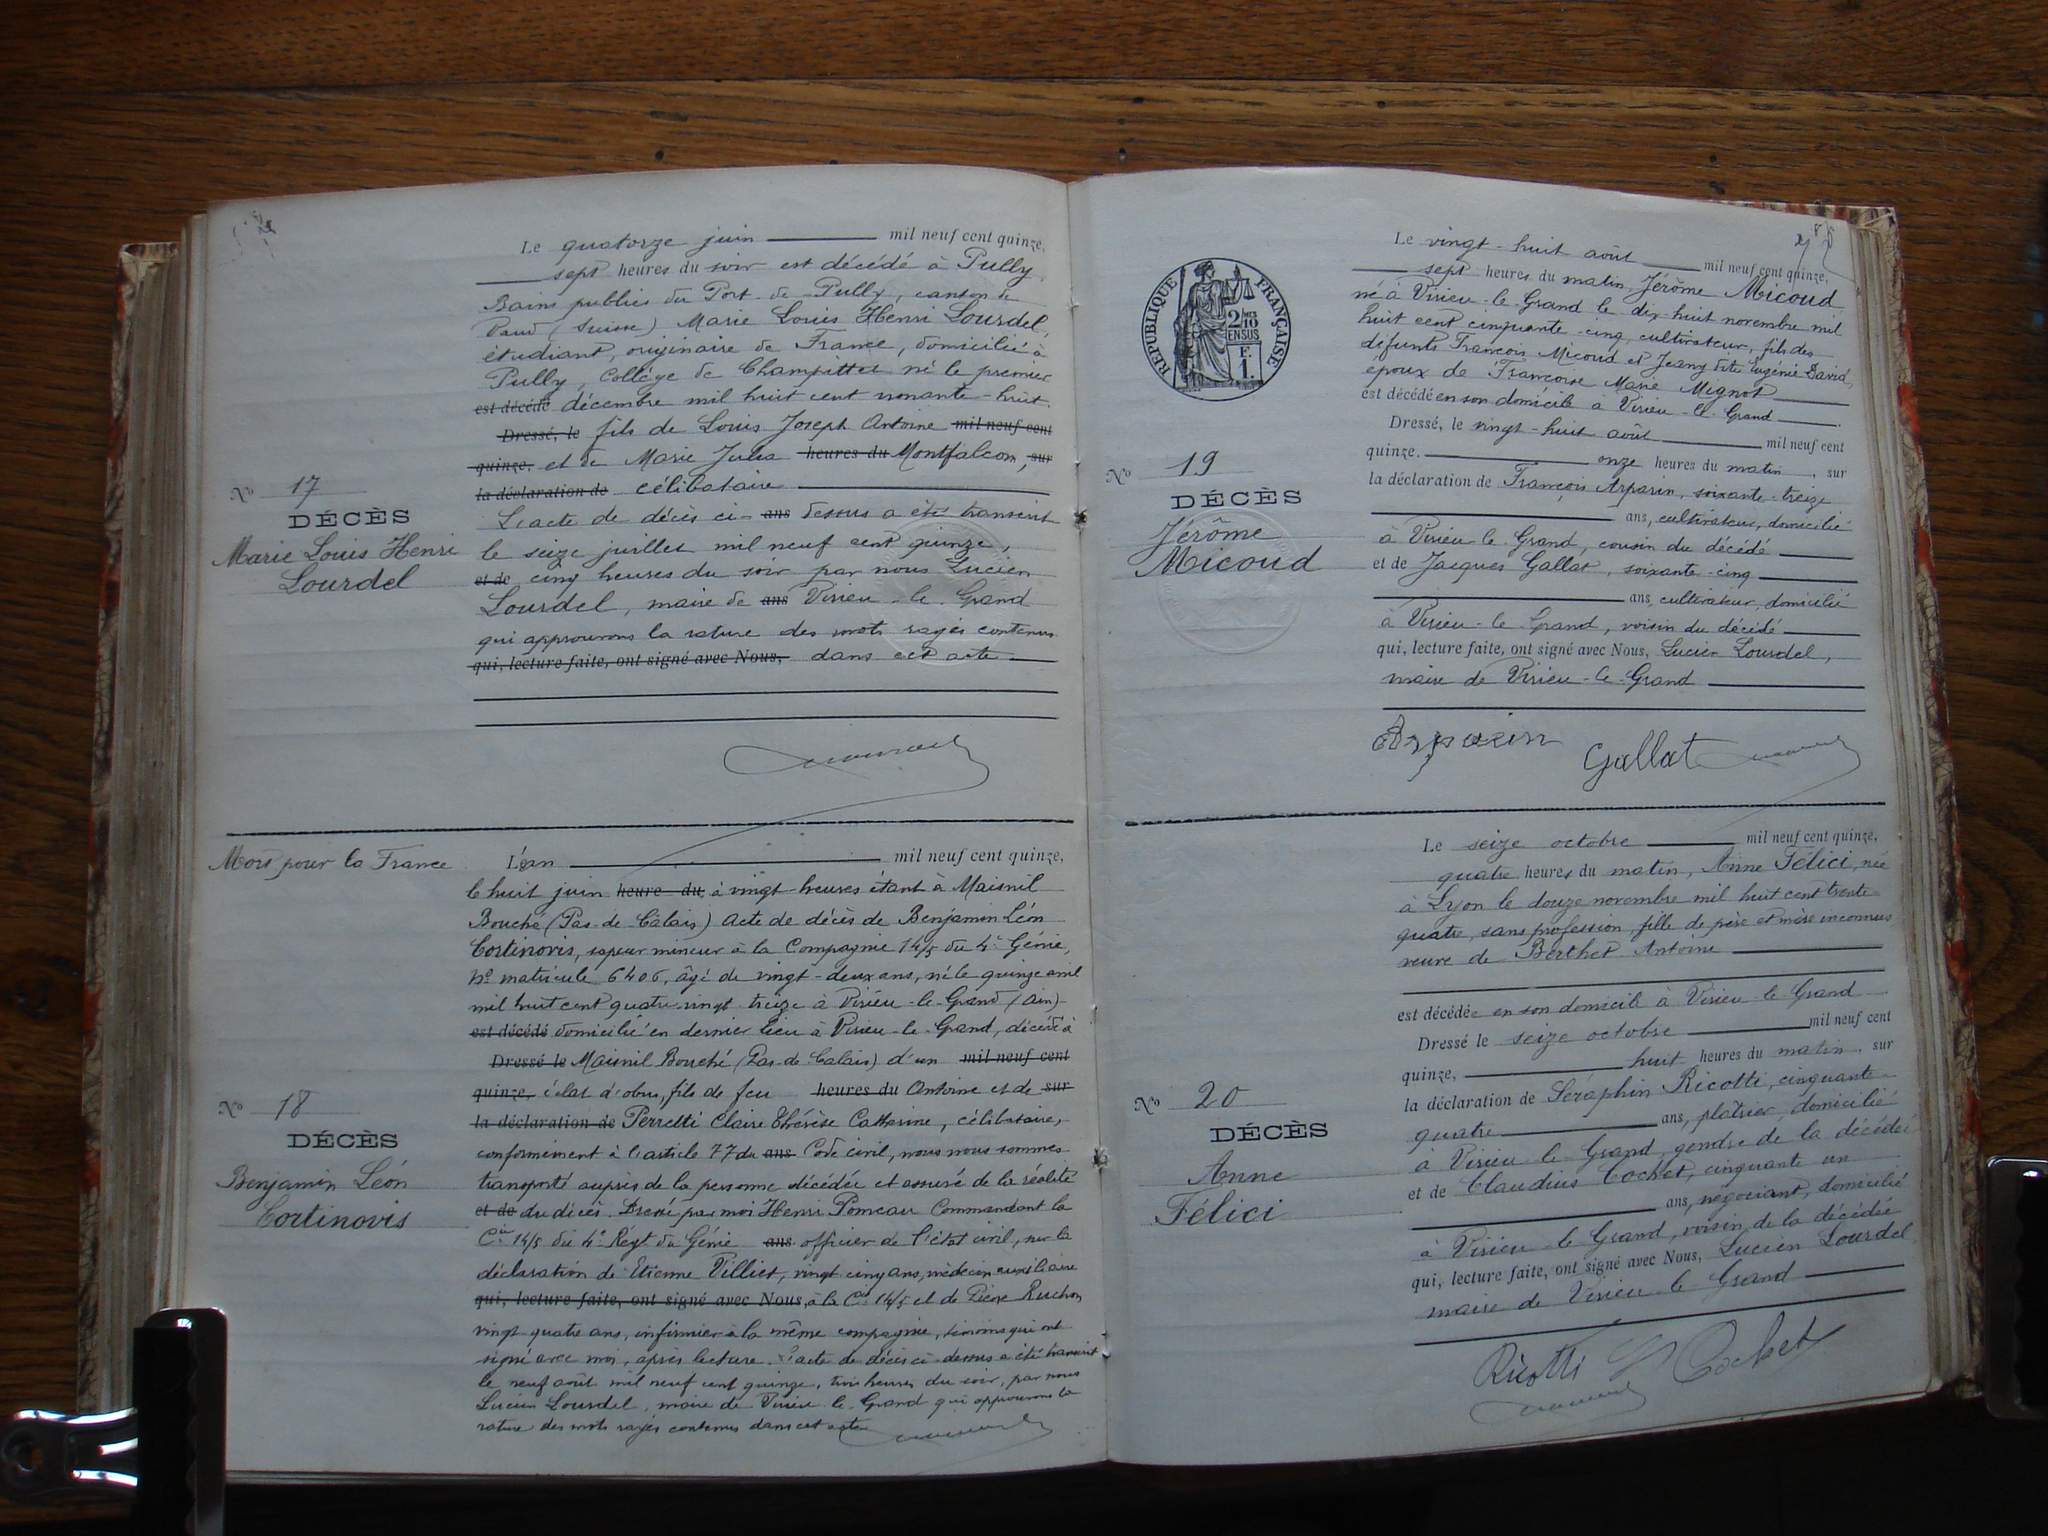 Le quatorze juin mil neuf cent quinze,
sept heures du soir est décédé à Pully,
Bains publics du Port de Pully, canton de
Vaud (Suisse) Marie Louis Henri Lourdel,
étudiant, originaire de France, domicilié à
Pully, Collège de Champittet né le premier
est décédé décembre mil huit cent nonante-huit.
Dressé, le fils de Louis Joseph Antoine mil neuf cent
quinze. et de Marie Julia heures du Montfalcon, sur
la déclaration de célibataire
L'acte de décès ci- ans dessus a été transcrit
le seize juillet mil neuf cent quinze,
et de cinq heures du soir par nous Lucien
Lourdel, maire de ans Virieu-le-Grand
qui approuvons la rature des mots rayés contenus
qui, lecture faite, ont signé avec Nous, dans cet acte
No 17
DÉCÈS
Marie Louis Henri
Lourdel
Mort pour la France
L'an mil neuf cent quinze,
le huit juin heure du à vingt-heures étant à Maisnil
Bouché (Pas-de-Calais) Acte de décès de Benjamin Léon
Cortinovis, sapeur mineur à la Compagnie 14/5 du 4e Génie,
No matricule 6406, âgé de vingt-deux ans, né le quinze avril
mil huit cent quatre-vingt treize à Virieu-le-Grand (Ain)
est décédé domicilié en dernier lieu à Virieu-le-Grand, décédé à
Dressé le Maisnil Bouché (Pas-de-Calais) d'un mil neuf cent
quinze, éclat d'obus, fils de feu heures du Antoine et de sur
la déclaration de Perretti Claire Thérèse Catherine, célibataire,
conformément à l'article 77 du ans Code civil, nous nous sommes
transporté auprès de la personne décédée et assuré de la réalité
et de du décès. Dressé par moi Henri Pomeau Commandant la
Cie 14/5 du 4e Régt du Génie ans officier de l'état civil, sur la
déclaration de Etienne Villiet, vingt cinq ans, médecin auxiliaire
qui, lecture faite, ont signé avec Nous, à la Cie 14/5 et de Pierre Ruchon
vingt quatre ans, infirmier à la même compagnie, témoins qui ont
signé avec moi, après lecture. L'acte de décès ci-dessus a été transcrit
le neuf août mil neuf cent quinze, trois heures du soir, par nous
Lucien Lourdel, maire de Virieu-le-Grand qui approuvons la
rature des mots rayés contenus dans cet acte
No 18
DÉCÈS
Benjamin Léon
Cortinovis
RÉPUBLIQUE FRANÇAISE
2/10
EN SUS
F.
1.
Le vingt-huit août mil neuf cent quinze,
sept heures du matin, Jérôme Micoud
né à Virieu-le-Grand le dix-huit novembre mil
huit cent cinquante-cinq, cultivateur, fils des
défunts François Micoud et Jeany dite Eugénie David,
époux de Françoise Marie Mignot
est décédé en son domicile à Virieu-le-Grand
Dressé, le vingt-huit août mil neuf cent
quinze. onze heures du matin, sur
la déclaration de François Arparin, soixante-treize
ans, cultivateur, domicilié
à Virieu-le-Grand, cousin du décédé
et de Jacques Gallat, soixante-cinq
ans, cultivateur, domicilié
à Virieu-le-Grand, voisin du décédé
qui, lecture faite, ont signé avec Nous, Lucien Lourdel,
maire de Virieu-le-Grand
Arparin Gallat
No 19
DÉCÈS
Jérôme
Micoud
Le seize octobre mil neuf cent quinze,
quatre heures du matin, Anne Félici, née
à Lyon le douze novembre mil huit cent trente
quatre, sans profession, fille de père et mère inconnus
veuve de Berthet Antoine
est décédée en son domicile à Virieu-le-Grand
Dressé le seize octobre mil neuf cent
quinze, huit heures du matin, sur
la déclaration de Séraphin Ricotti, cinquante-
quatre ans, plâtrier, domicilié
à Virieu-le-Grand, gendre de la décédée
et de Claudius Cochet, cinquante un
ans, négociant, domicilié
à Virieu-le-Grand, voisin de la décédée
qui, lecture faite, ont signé avec Nous, Lucien Lourdel
maire de Virieu-le-Grand
Ricotti Cochet
No 20
DÉCÈS
Anne
Félici